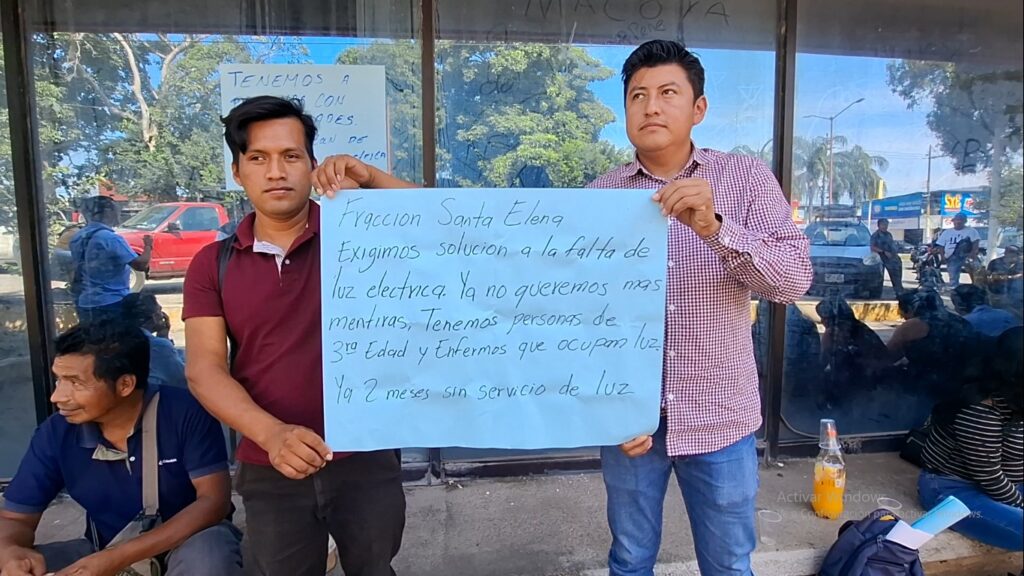 MACOYA
TENEMOS A
CON
DE
Fraccion Santa Elena
Exigimos solucion a la falta de
luz electrica. Ya no queremos mas
mentiras, Tenemos personas de
3ra Edad y Enfermos que ocupan luz.
Ya 2 meses sin servicio de luz
Activar Windows